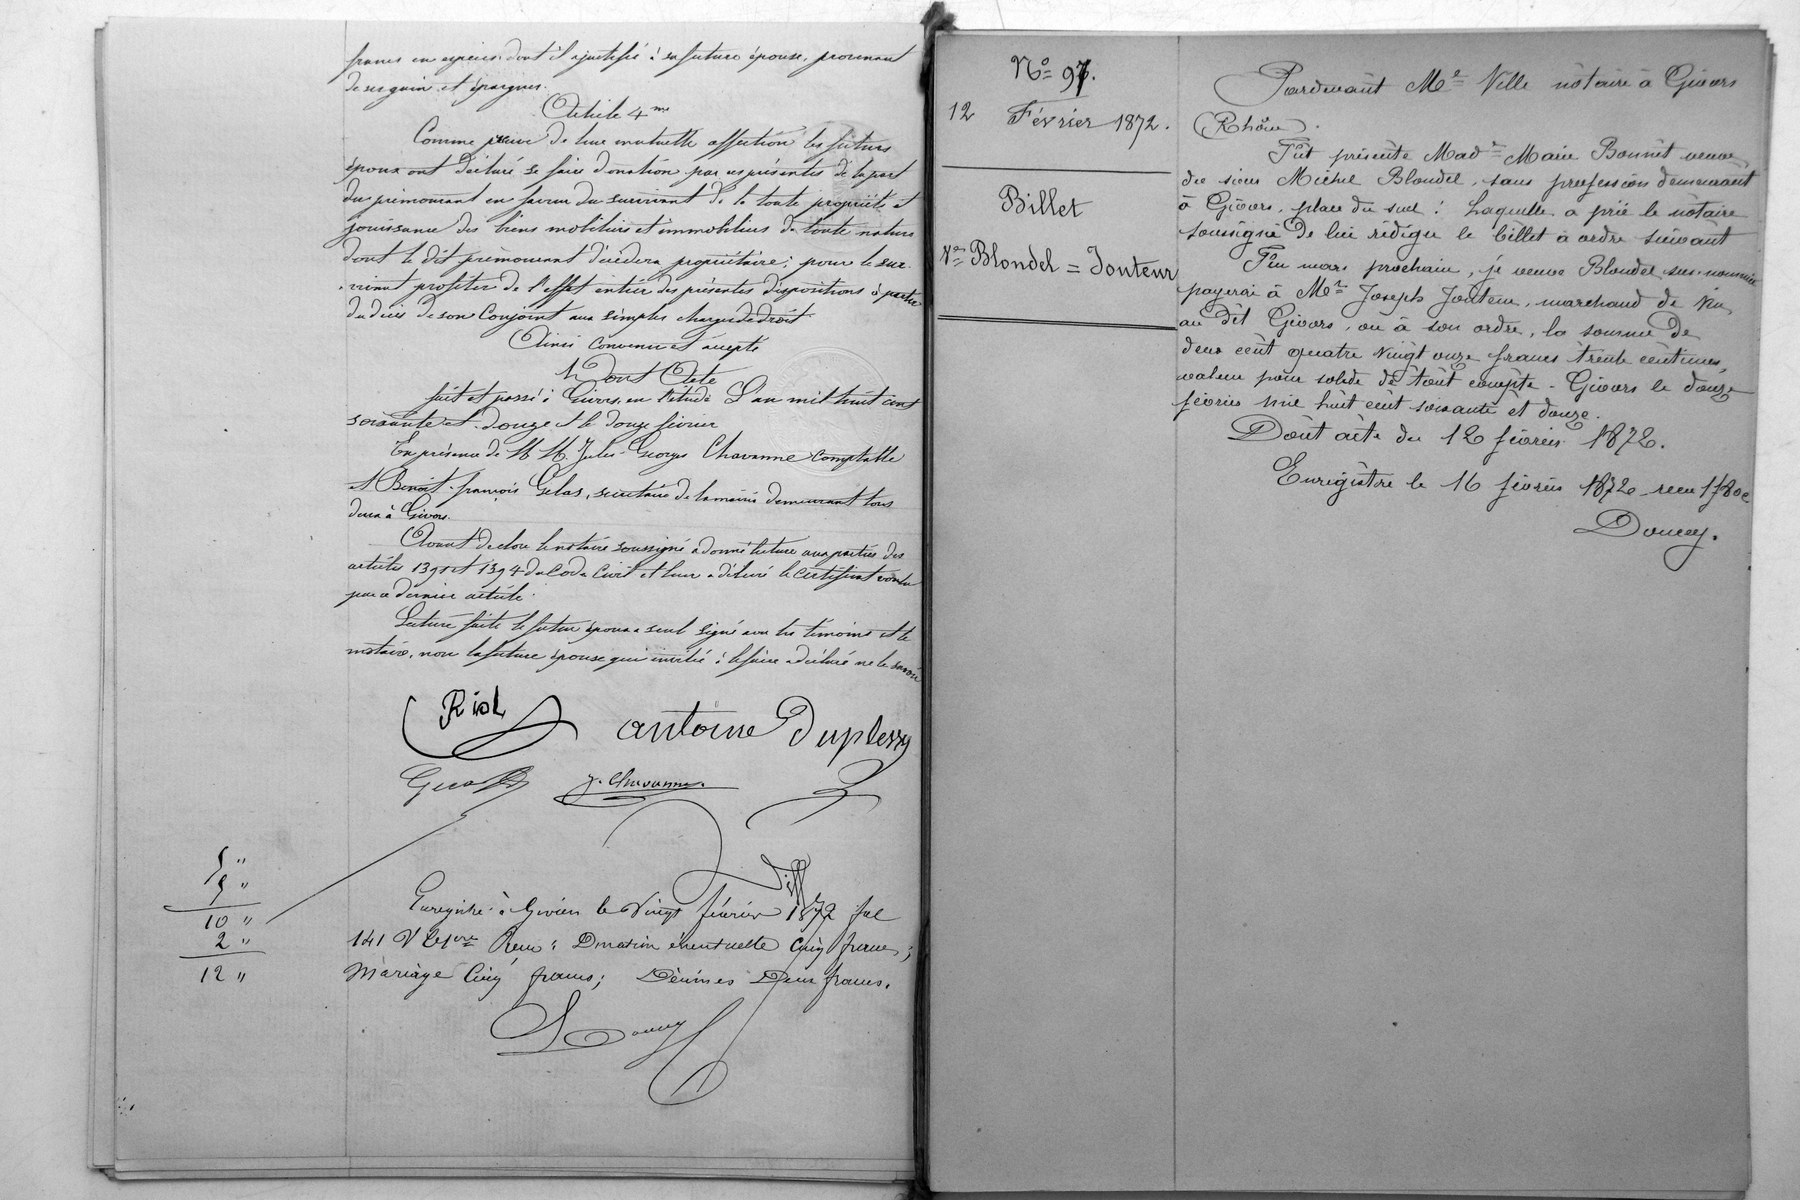 francs en espèces dont il a justifié à sa future épouse, provenant
de ses gains et épargnes.
Article 4me
Comme preuve de leur mutuelle affection les futurs
époux ont déclaré se faire donation par ces présentes de la part
du prémourant en faveur du survivant de la toute propriété et
jouissance des biens mobiliers et immobiliers de toute nature
dont le dit prémourant décédera propriétaire; pour le sur-
vivant profiter de l'effet entier des présentes dispositions à partir
du décès de son Conjoint aux simples charges de droit.
Ainsi convenu et accepté
Dont Acte
fait et passé à Givors, en l'étude L'an mil huit cent
soixante et douze et le douze février
En présence de M M. Jules Georges Chavanne comptable
et Benoit françois Gelas, secrétaire de la mairie demeurant tous
deux à Givors.
Avant de clore le notaire soussigné a donné lecture aux parties des
articles 1391 et 1394 du Code Civil et leur a délivré le certificat voulu
par ce dernier article.
Lecture faite le futur époux a seul signé avec les témoins et le
notaire, non la future épouse qui invitée à le faire a déclaré ne le savoir
antoine Duplessy
J. Chavanne.
5 "
5 "
10 "
2 "
12 "
Enregistré à Givors le Vingt février 1872 fol
141 V Reçu: Donation éventuelle Cinq francs;
Mariage Cinq francs; Décimes Deux francs.
Doucey
No 97.
12 Février 1872.
Billet
Ve Blondel = Jouteur
Pardevant Me Ville notaire à Givors
(Rhône).
Fut présente Made Marie Bonnet veuve
du sieur Michel Blondel, sans profession demeurant
à Givors, place du sud: Laquelle a prié le notaire
soussigné de lui rédiger le billet à ordre suivant
Fin mars prochain, je veuve Blondel sus-nommée
payerai à Mr Joseph Jouteur, marchand de vin
au dit Givors, ou à son ordre, la somme de
deux cent quatre vingt onze francs trente centimes,
valeur pour solde de tout compte. Givors le douze
février mil huit cent soixante et douze.
Dont acte du 12 février 1872.
Enregistré le 16 février 1872 reçu 1f80c
Doucey.